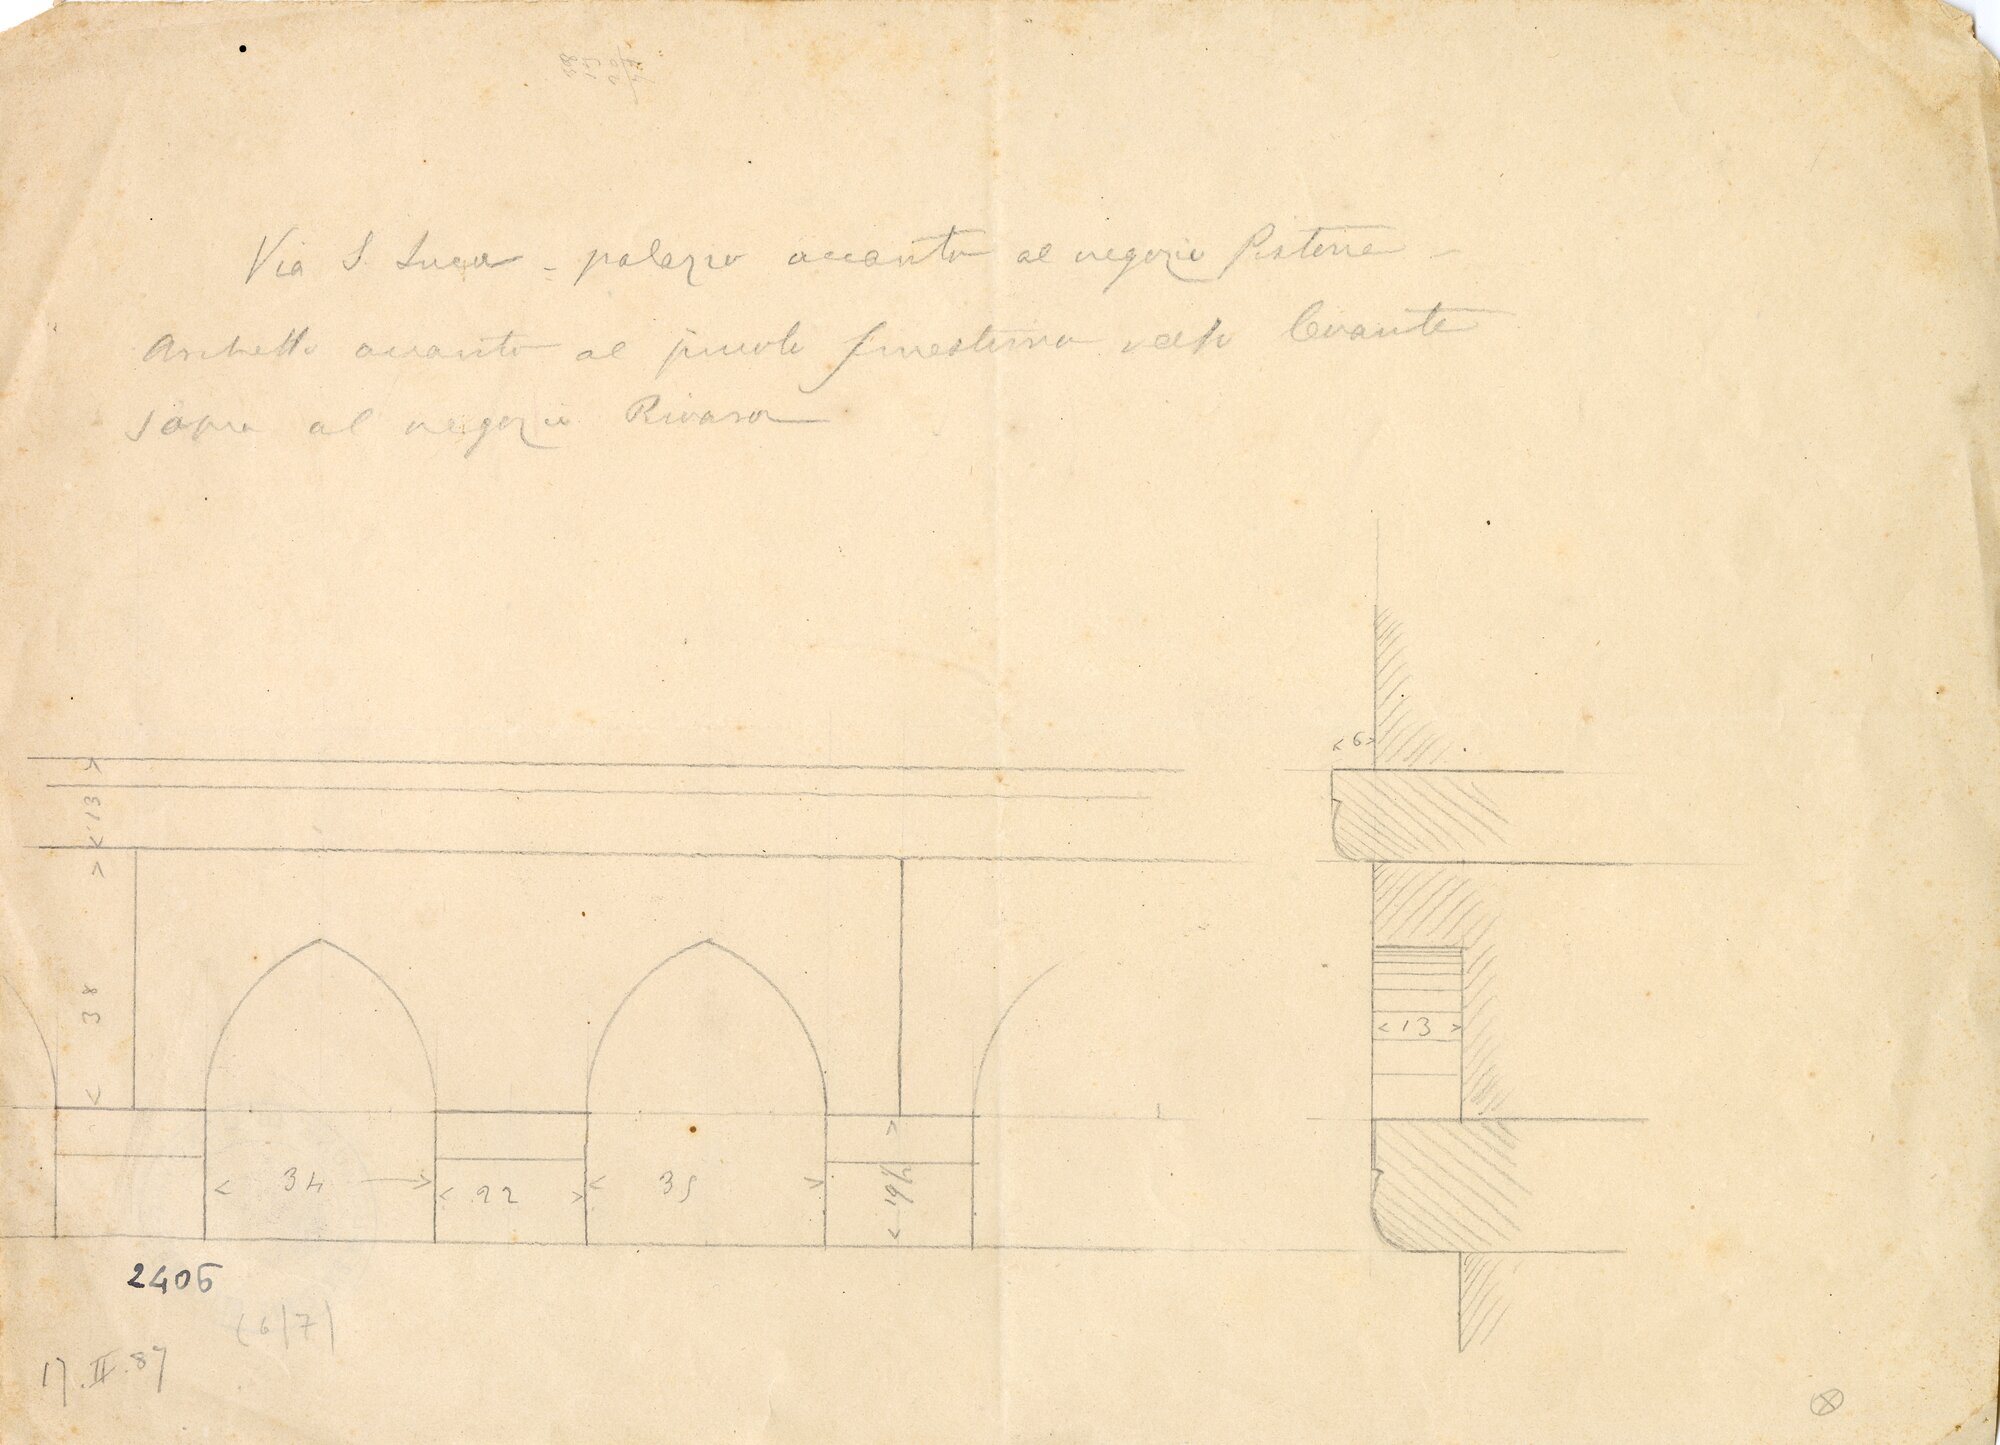 Via S. Luca - palazzo accanto al negozio Pistone -
Archetto accanto al piccolo finestrino verso levante
sopra al negozio Rivara
6
13
38
13
34
22
35
19½
2406
(6/7)
17.II.87